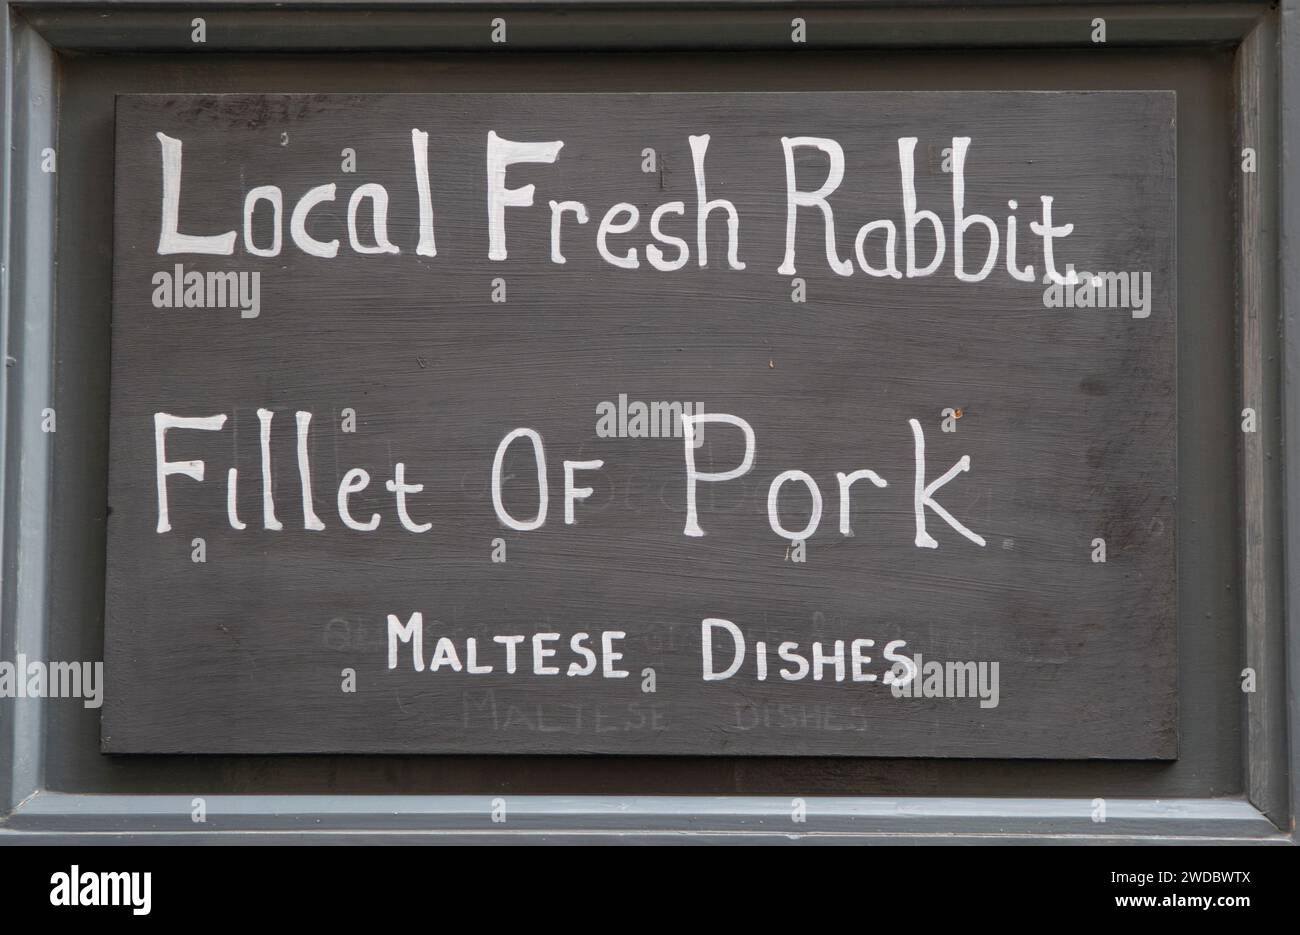 Local Fresh Rabbit.
Fillet OF Pork
MALTESE DISHES
MALTESE DISHES
alamy
Image ID: 2WDBWTX
www.alamy.com